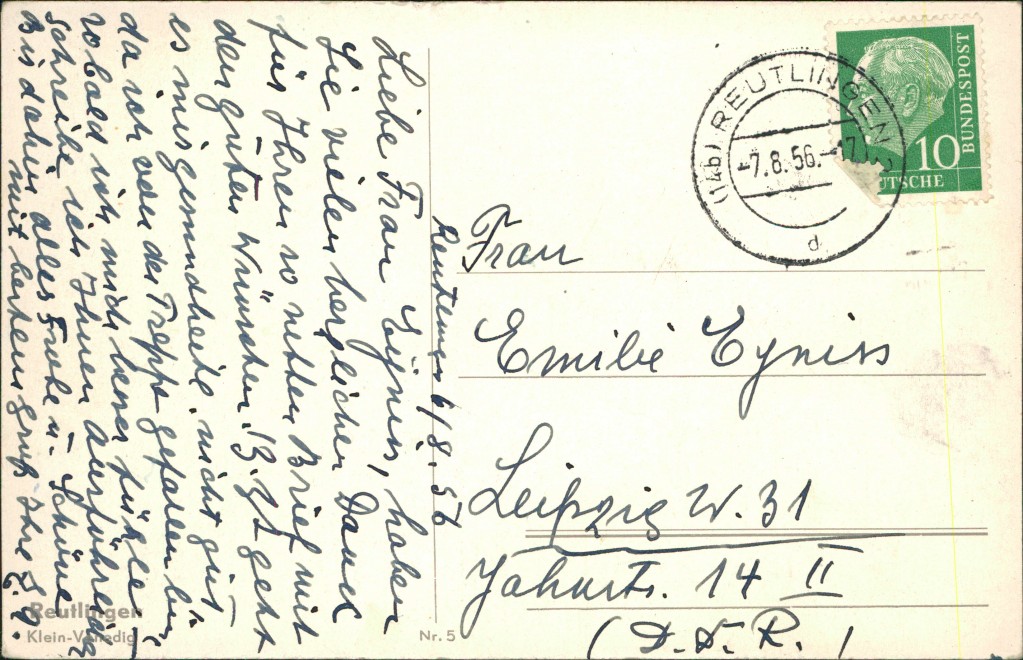 Reutlingen 6/8. 56
Liebe Frau Eyniss, haben
Sie vielen herzlichen Dank
für Ihren so netten Brief mit
den guten Wünschen. Z. Zt geht
es mir gesundheitl. nicht gut,
da ich von der Treppe gefallen bin
sobald ich mich besser fühle
schreibe ich Ihnen ausführlich
Bis dahin alles Frohe u. Schöne
mit herzensgruß Ihre
Frau
Emilie Eyniss
Leipzig W. 31
Jahnstr. 14 II
(D. D. R.)
(14b) REUTLINGEN 2
-7.8.56.-17
d
10
BUNDESPOST
UTSCHE
Reutlingen
Klein-Venedig
Nr. 5